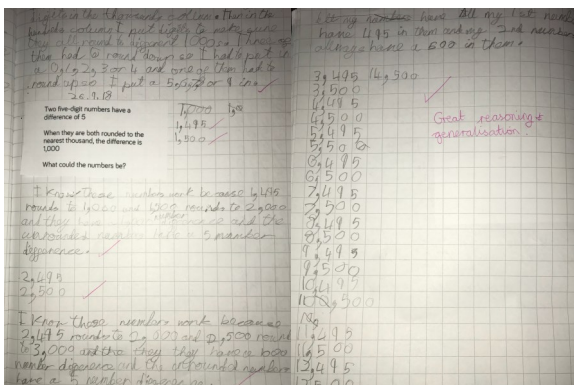 digits in the thousands column. Then in the
hundreds column I put digits to make sure
they all round to different 1000s. I knew one of
them had to round down so I had to put in
a 0, 1, 2, 3 or 4 and one of them had to
round up so I put a 5, 6, 7, 8 or 9 in.
26.9.18
Two five-digit numbers have a
difference of 5
When they are both rounded to the
nearest thousand, the difference is
1,000
What could the numbers be?
1,000
1,495
1,500
I know these numbers work because 1,495
rounds to 1,000 and 1,500 rounds to 2,000
and they have a number and the
unrounded numbers have a 5 number
difference.
2,495
2,500
I know those numbers work because
2,495 rounds to 2,000 and 2,500 round
to 3,000 and they they have a 1000
number difference and the unrounded numbers
have a 5 number difference.
number have All my 1st number
have 495 in them and my 2nd number
all have a 500 in them.
3,495 (4,500
3,500
4,495
4,500
5,495
5,500
6,495
6,500
7,495
7,500
8,495
8,500
9,495
9,500
10,495
10,500
11,495
11,500
12,495
12,500
Great reasoning &
generalisation.